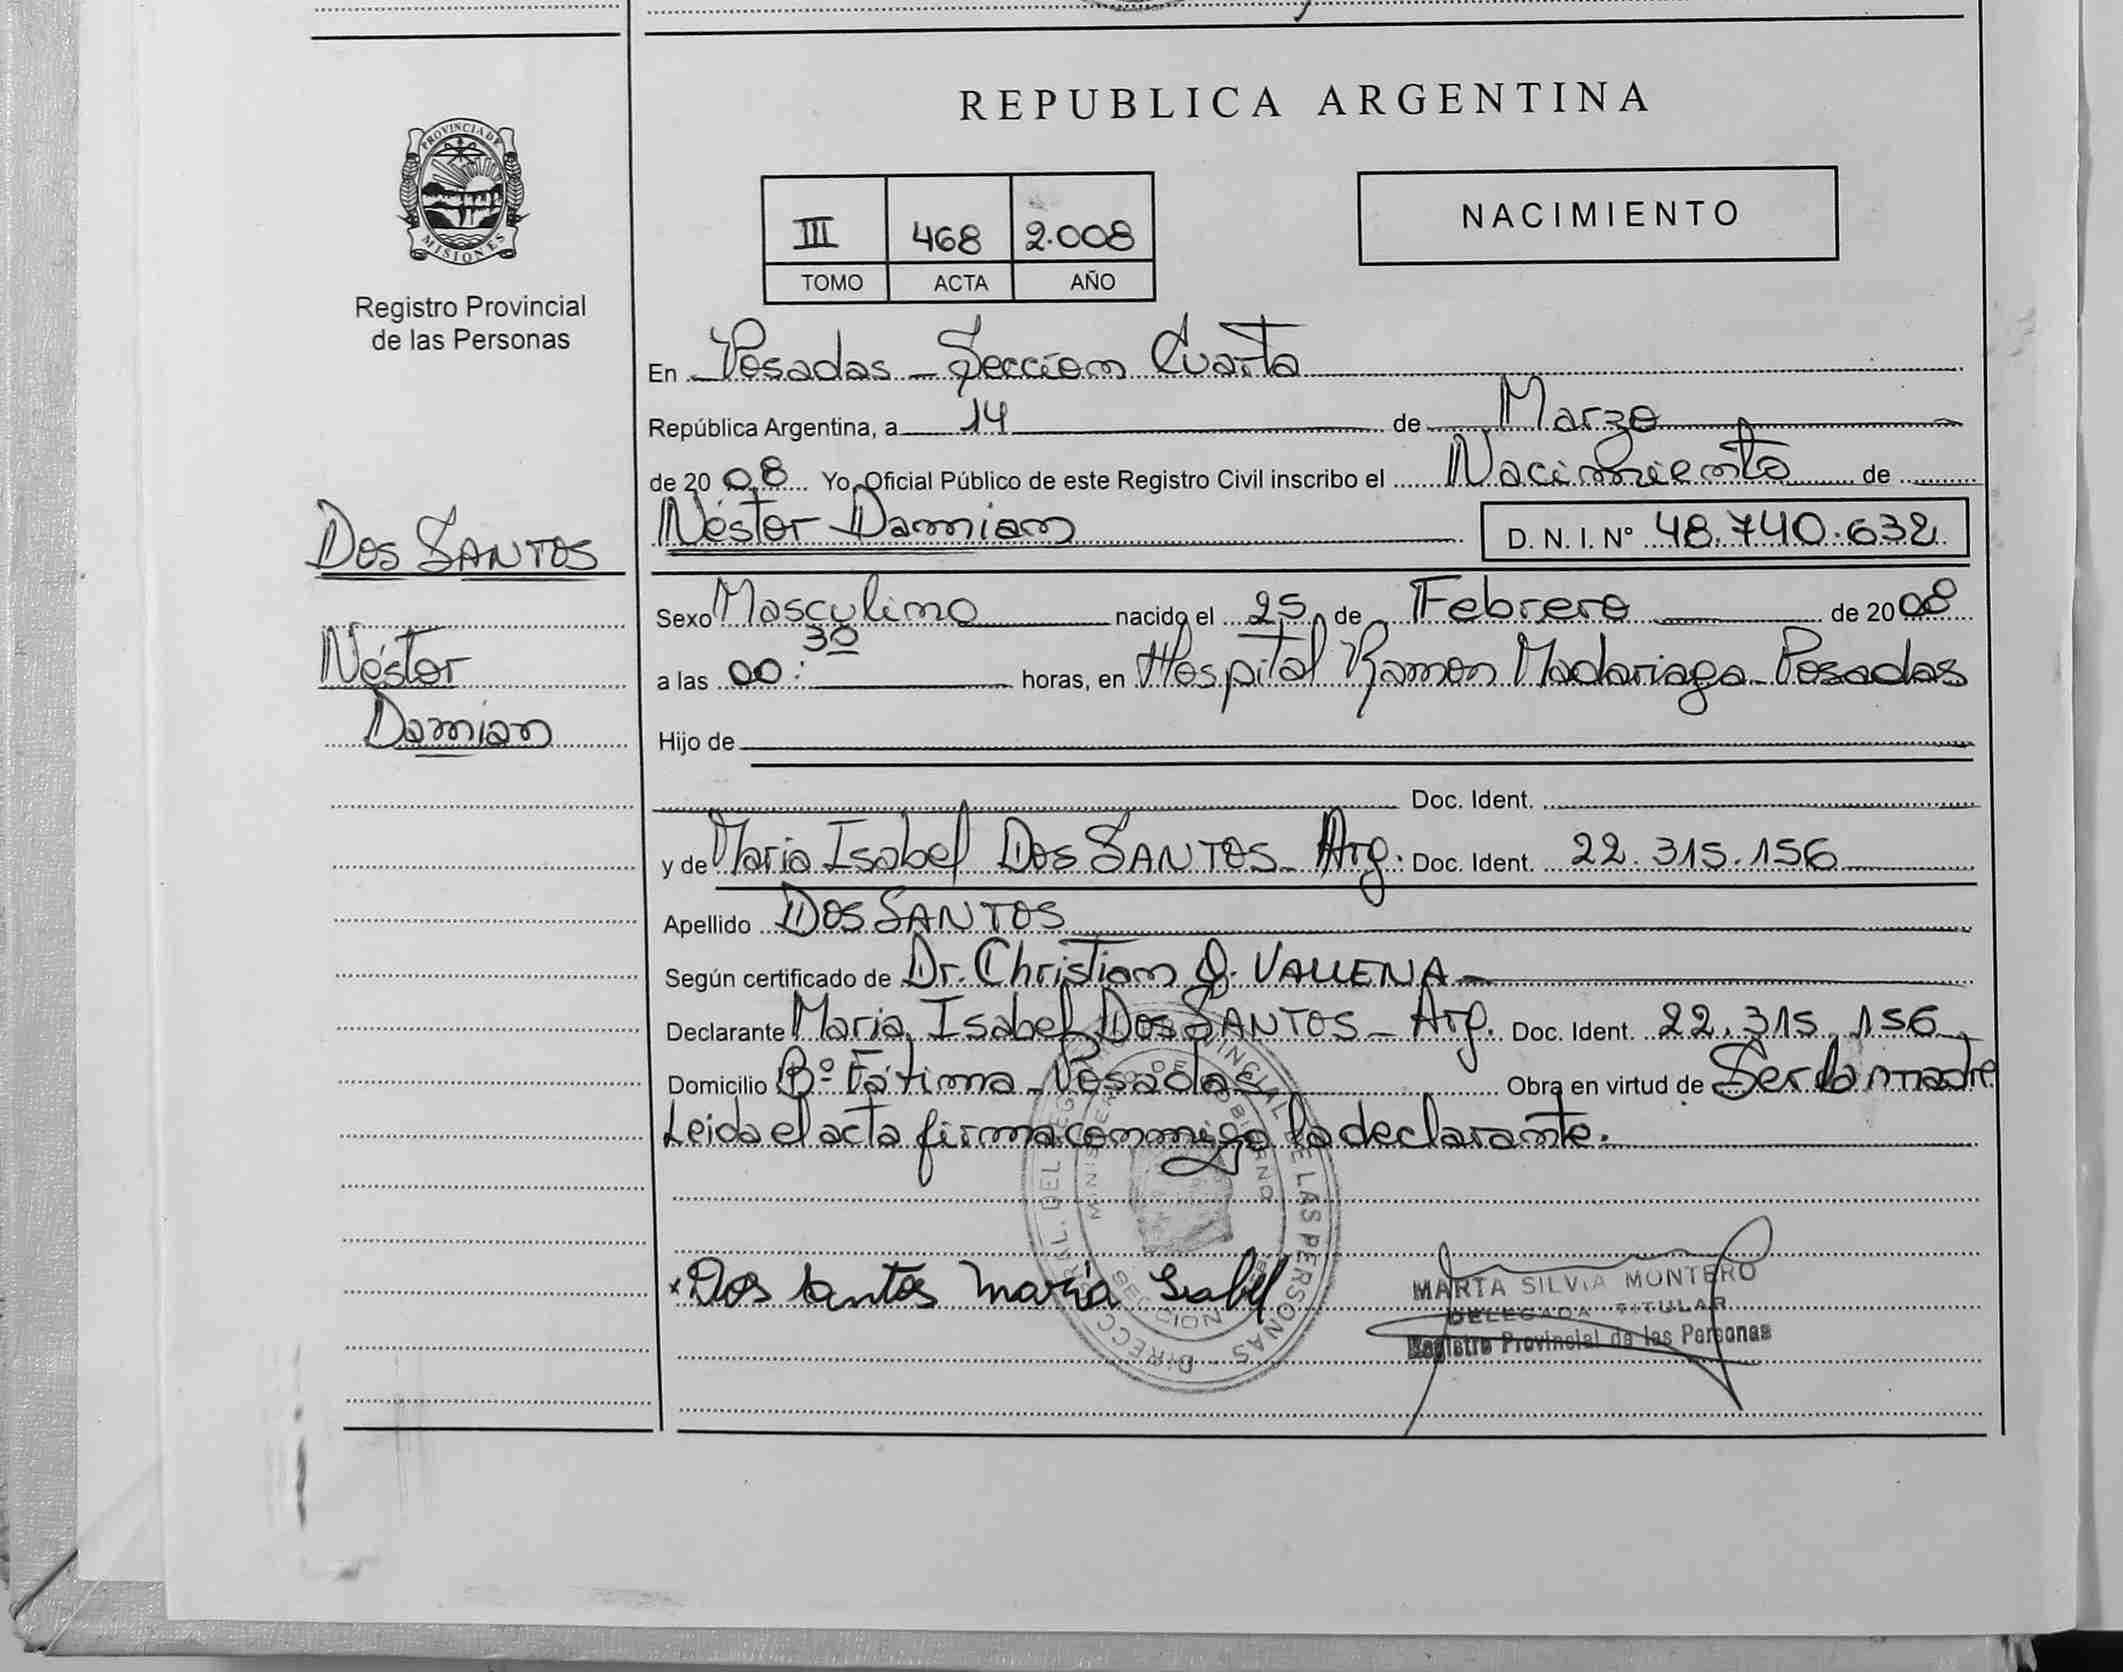 REPUBLICA ARGENTINA
PROVINCIA DE
MISIONES
Registro Provincial
de las Personas
NACIMIENTO
III 468 2.008
TOMO ACTA AÑO
En Posadas - Sección Cuarta
República Argentina, a 14 de Marzo
de 2008 Yo, Oficial Público de este Registro Civil inscribo el Nacimiento de
Néstor Damian D. N. I. Nº 48.740.632
DOS SANTOS
Néstor
Damian
Sexo Masculino nacido el 25 de Febrero de 2008
a las 00:30 horas, en Hospital Ramon Madariaga - Posadas
Hijo de
Doc. Ident.
y de Maria Isabel DOS SANTOS - Arg. Doc. Ident. 22.315.156
Apellido DOS SANTOS
Según certificado de Dr. Christian J. VALLENA
Declarante Maria Isabel DOS SANTOS - Arg. Doc. Ident. 22.315.156
Domicilio Bº Fátima - Posadas Obra en virtud de Ser la madre
Leida el acta firma conmigo la declarante.
x Dos Santos María Isabel
MARTA SILVIA MONTERO
DELEGADA TITULAR
Registro Provincial de las Personas